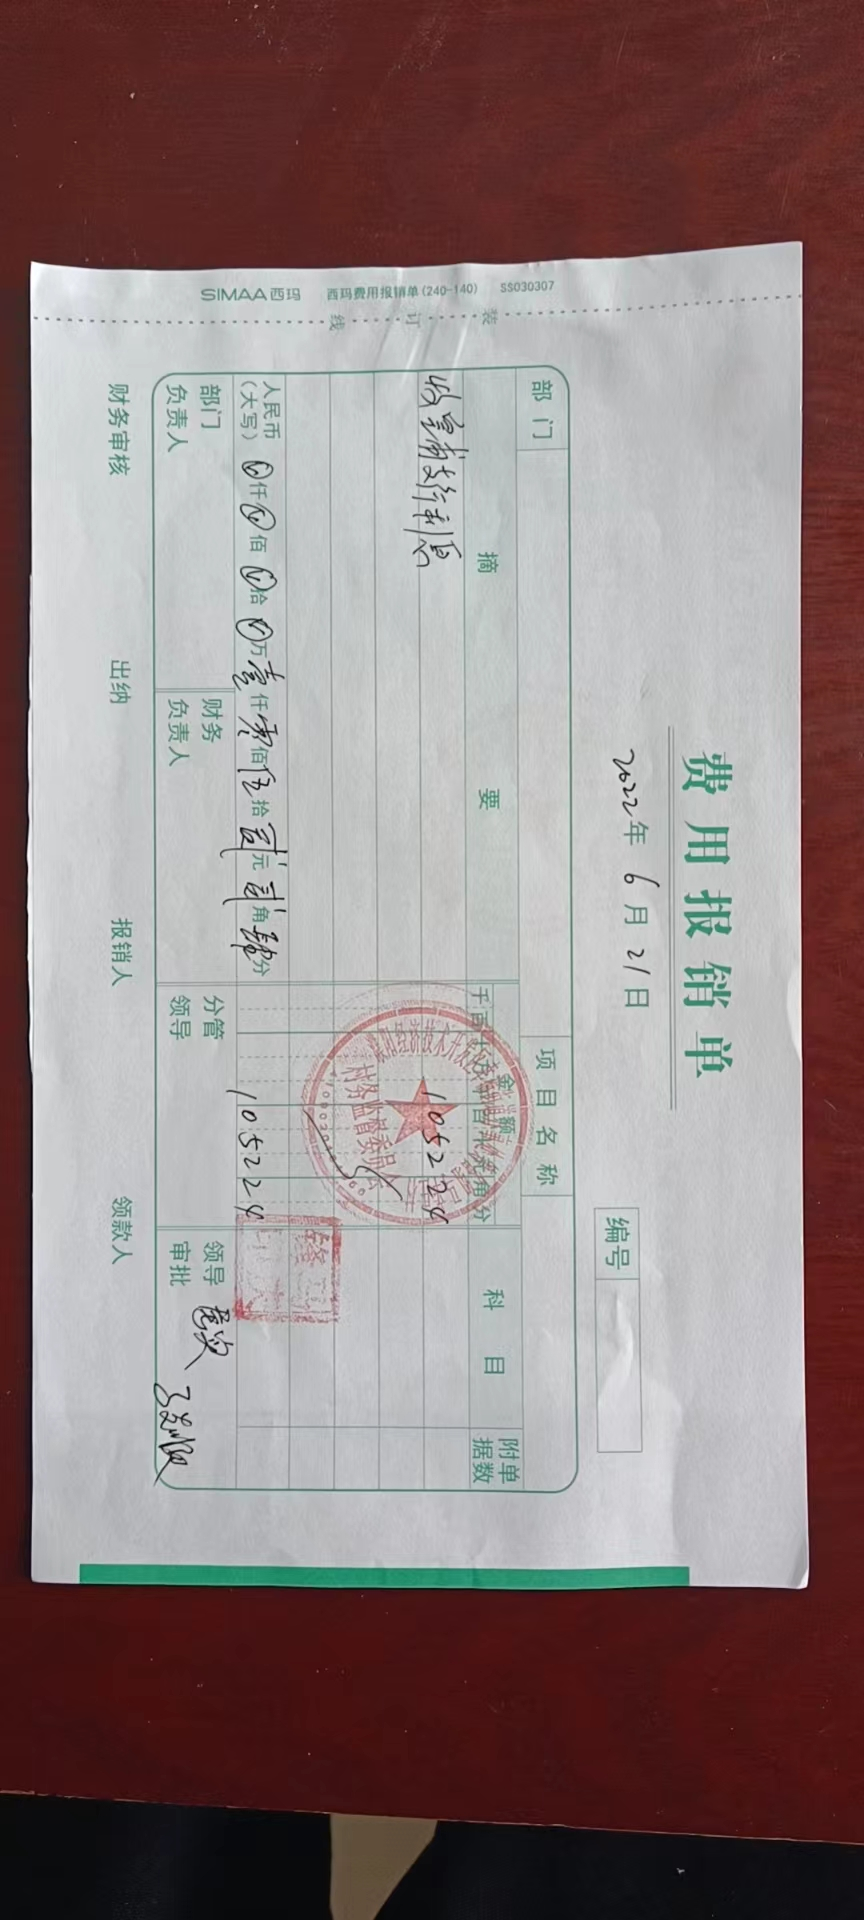 费用报销单
2022年6月21日
编号
部门
项目名称
摘要
金额
科目
附单据数
千百十万千百十元角分
收 支行利息
105224
人民币（大写） 仟 佰 拾 万壹仟零佰伍拾贰元贰角肆分
105224
部门负责人
财务负责人
分管领导
领导审批
财务审核
出纳
报销人
领款人
经济技术开发区
村务监督委员会
装订线
SIMAA西玛 西玛费用报销单(240-140) SS030307